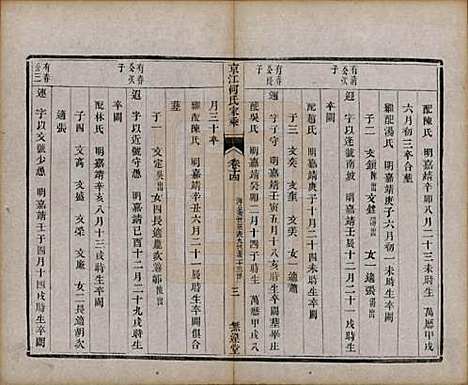 配陳氏 明嘉靖辛卯八月二十三亥時生 萬歷甲戌
六月初三卒合墓
繼配湯氏 明嘉靖庚子六月初一未時生卒闕
子二 文鎖 文 女一適張
迥 字以達號南坡 明嘉靖
配趙氏 明嘉靖庚子十月二十四未時生卒闕
子三 文 文美 女一適蕭
迴 字子守 明嘉靖壬寅五月十八亥時生卒闕墓
配吳氏 明嘉靖癸卯二月十四子時生 萬歷甲戌八
京江何氏家乘
卷十四
三
無違堂
月三十卒
繼配陳氏 明嘉靖辛丑六月二十一辰時生卒闕俱合
墓
子一 文定 女四長適嚴次適
迎 字以近號守愚 明嘉靖己酉十二月二十九戌時生
卒闕
配林氏 明嘉靖辛亥八月十三戌時生卒闕
子四 文高 文盛 文榮 文 女二長適胡次
適張
連 字以文號少愚 明嘉靖壬子四月十四戌時生卒闕